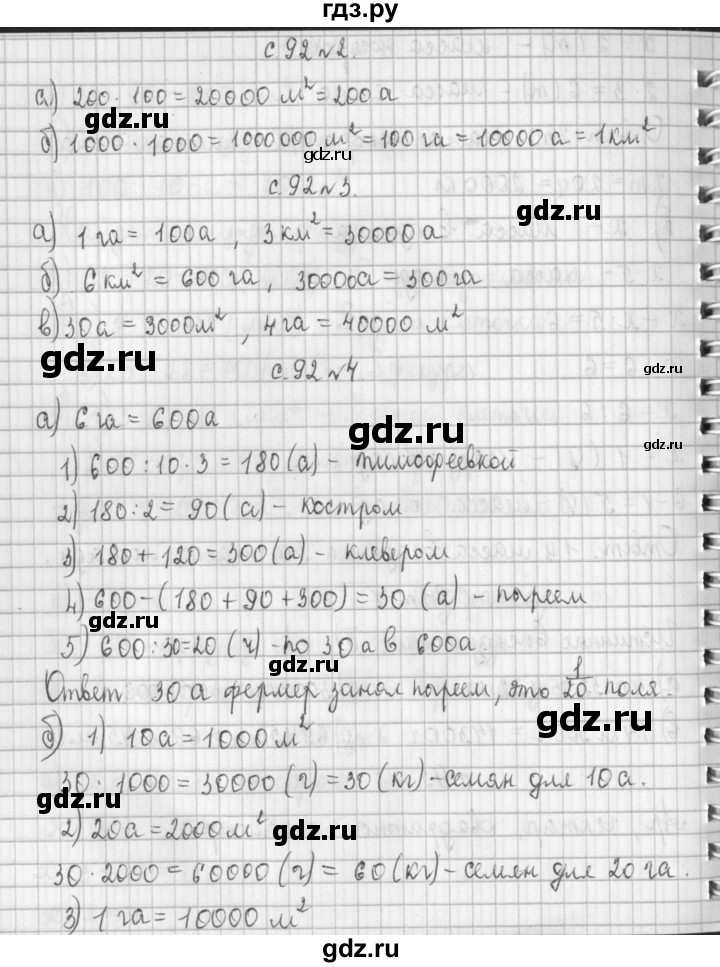 гдз.ру
с.92 №2.
а) 200·100=20000 м²=200а
gdz.ru
б) 1000·1000=1000000 м²=100 га=10000 а=1 км²
gdz.ru
с.92 №3.
gdz.ru
а) 1 га = 100а, 3 км² = 30000 а
б) 6 км² = 600 га, 30000а = 300 га
в) 30а = 3000м², 4 га = 40000 м²
gdz.ru gdz.ru
с.92 №4
gdz.ru
а) 6 га = 600а
gdz.ru
gdz.ru
1) 600:10·3 = 180 (а) - тимофеевкой
2) 180:2 = 90 (а) - костром
gdz.ru
3) 180+120=300 (а) - клевером
4) 600-(180+90+300)=30 (а) - пыреем
gdz.ru
5) 600:30=20 (ч) - по 30 а в 600а
gdz.ru
Ответ 30 а фермер занял пыреем, это 1/20 поля.
gdz.ru
б) 1) 10а = 1000 м²
30·1000=30000 (г)=30 (кг) - семян для 10а.
gdz.ru
2) 20а = 2000 м²
gdz.ru
30·2000=60000 (г) = 60 (кг) - семян для 20 га.
3) 1 га = 10000 м²
gdz.ru